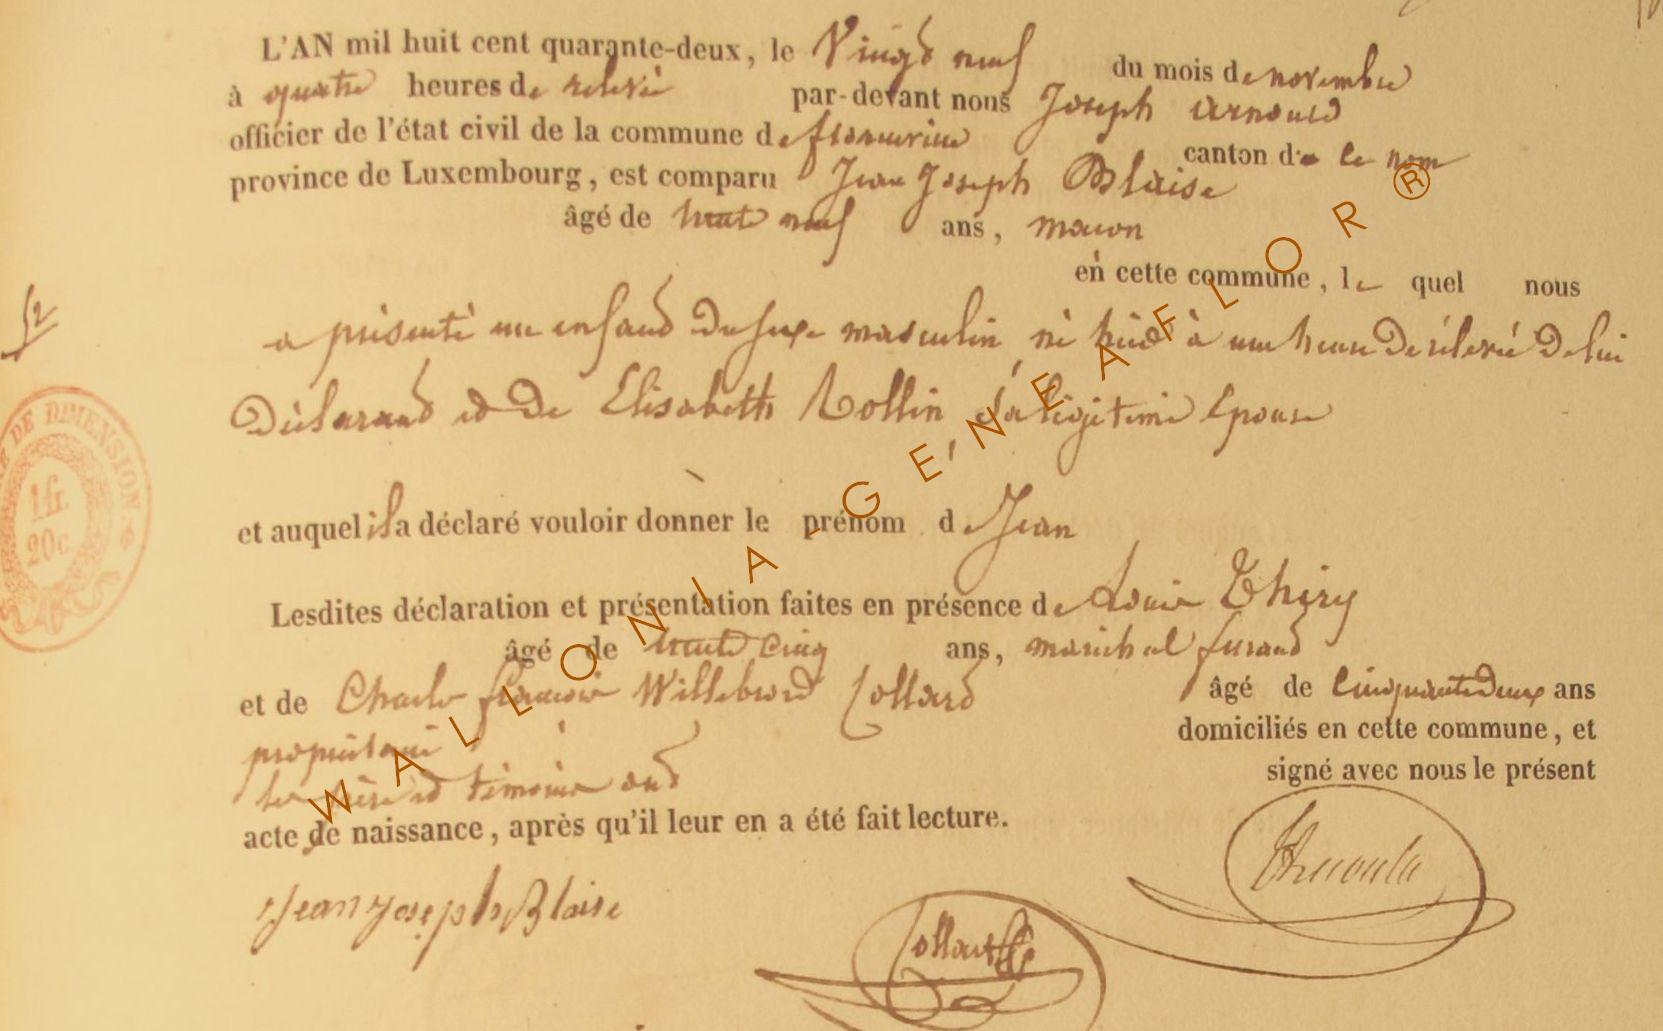 L'AN mil huit cent quarante-deux, le Vingt neuf du mois de novembre
à quatre heures de relevé par-devant nous Joseph Arnould
officier de l'état civil de la commune de florenville canton d
province de Luxembourg, est comparu Jean Joseph Blaise
âgé de trente neuf ans, maçon
en cette commune, le quel nous
52
a présenté un enfant du sexe masculin, né hier à une heure de rélevé de lui
Déclarant et de Elisabeth Rollin sa légitime épouse
TIMBRE DE DIMENSION.
1 fr.
20 c.
et auquel il a déclaré vouloir donner le prénom de Jean
Lesdites déclaration et présentation faites en présence de Louis Thiry
âgé de trente cinq ans, maréchal ferrand
et de Charles françois Willebrord Collard âgé de cinquante deux ans
propriétaire domiciliés en cette commune, et
les père et témoins ont signé avec nous le présent
acte de naissance, après qu'il leur en a été fait lecture.
Jean Joseph Blaise
WALLONIA-GÉNÉAFLOR®